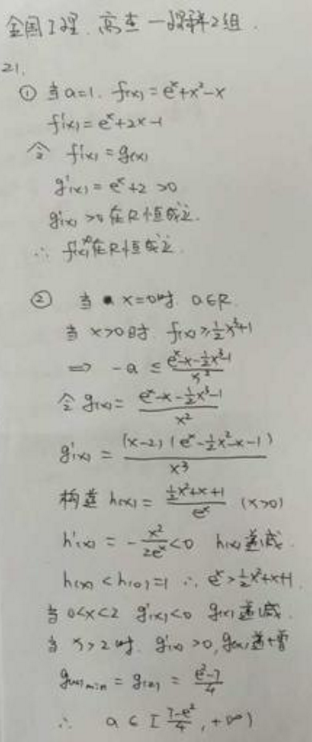 全国I理. 高考一
21.
① 当a=1. f(x)=e^x+x²-x
f'(x)=e^x+2x-1
令 f'(x)=g(x)
g'(x)=e^x+2>0
g'(x)>0在R恒成立.
② 当 x=0时. a∈R.
当 x>0时. f(x)≥½x³+1
⇒ -a ≤ (e^x-x-½x³-1)/x²
令 g(x)= (e^x-x-½x³-1)/x²
g'(x)= (x-2)(e^x-½x²-x-1)/x³
构造 h(x)= (½x²+x+1)/e^x (x>0)
h'(x)= -x²/2e^x<0 h(x)递减.
h(x)<h(0)=1 ∴ e^x>½x²+x+1.
当 0<x<2 g'(x)<0 g(x)递减.
当 x>2时. g'(x)>0, g(x)递增
g(x)min = g(2) = (e²-7)/4
∴ a∈[(7-e²)/4, +∞)